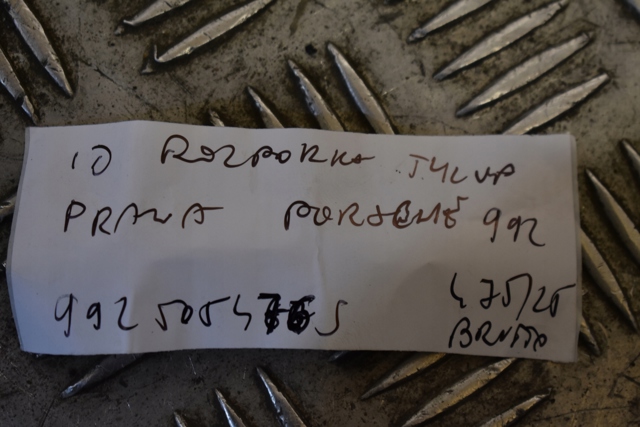 10 ROZPORKA TYŁ UP
PRAWA PORSCHE 992
992505476S
475/25
BRUTTO